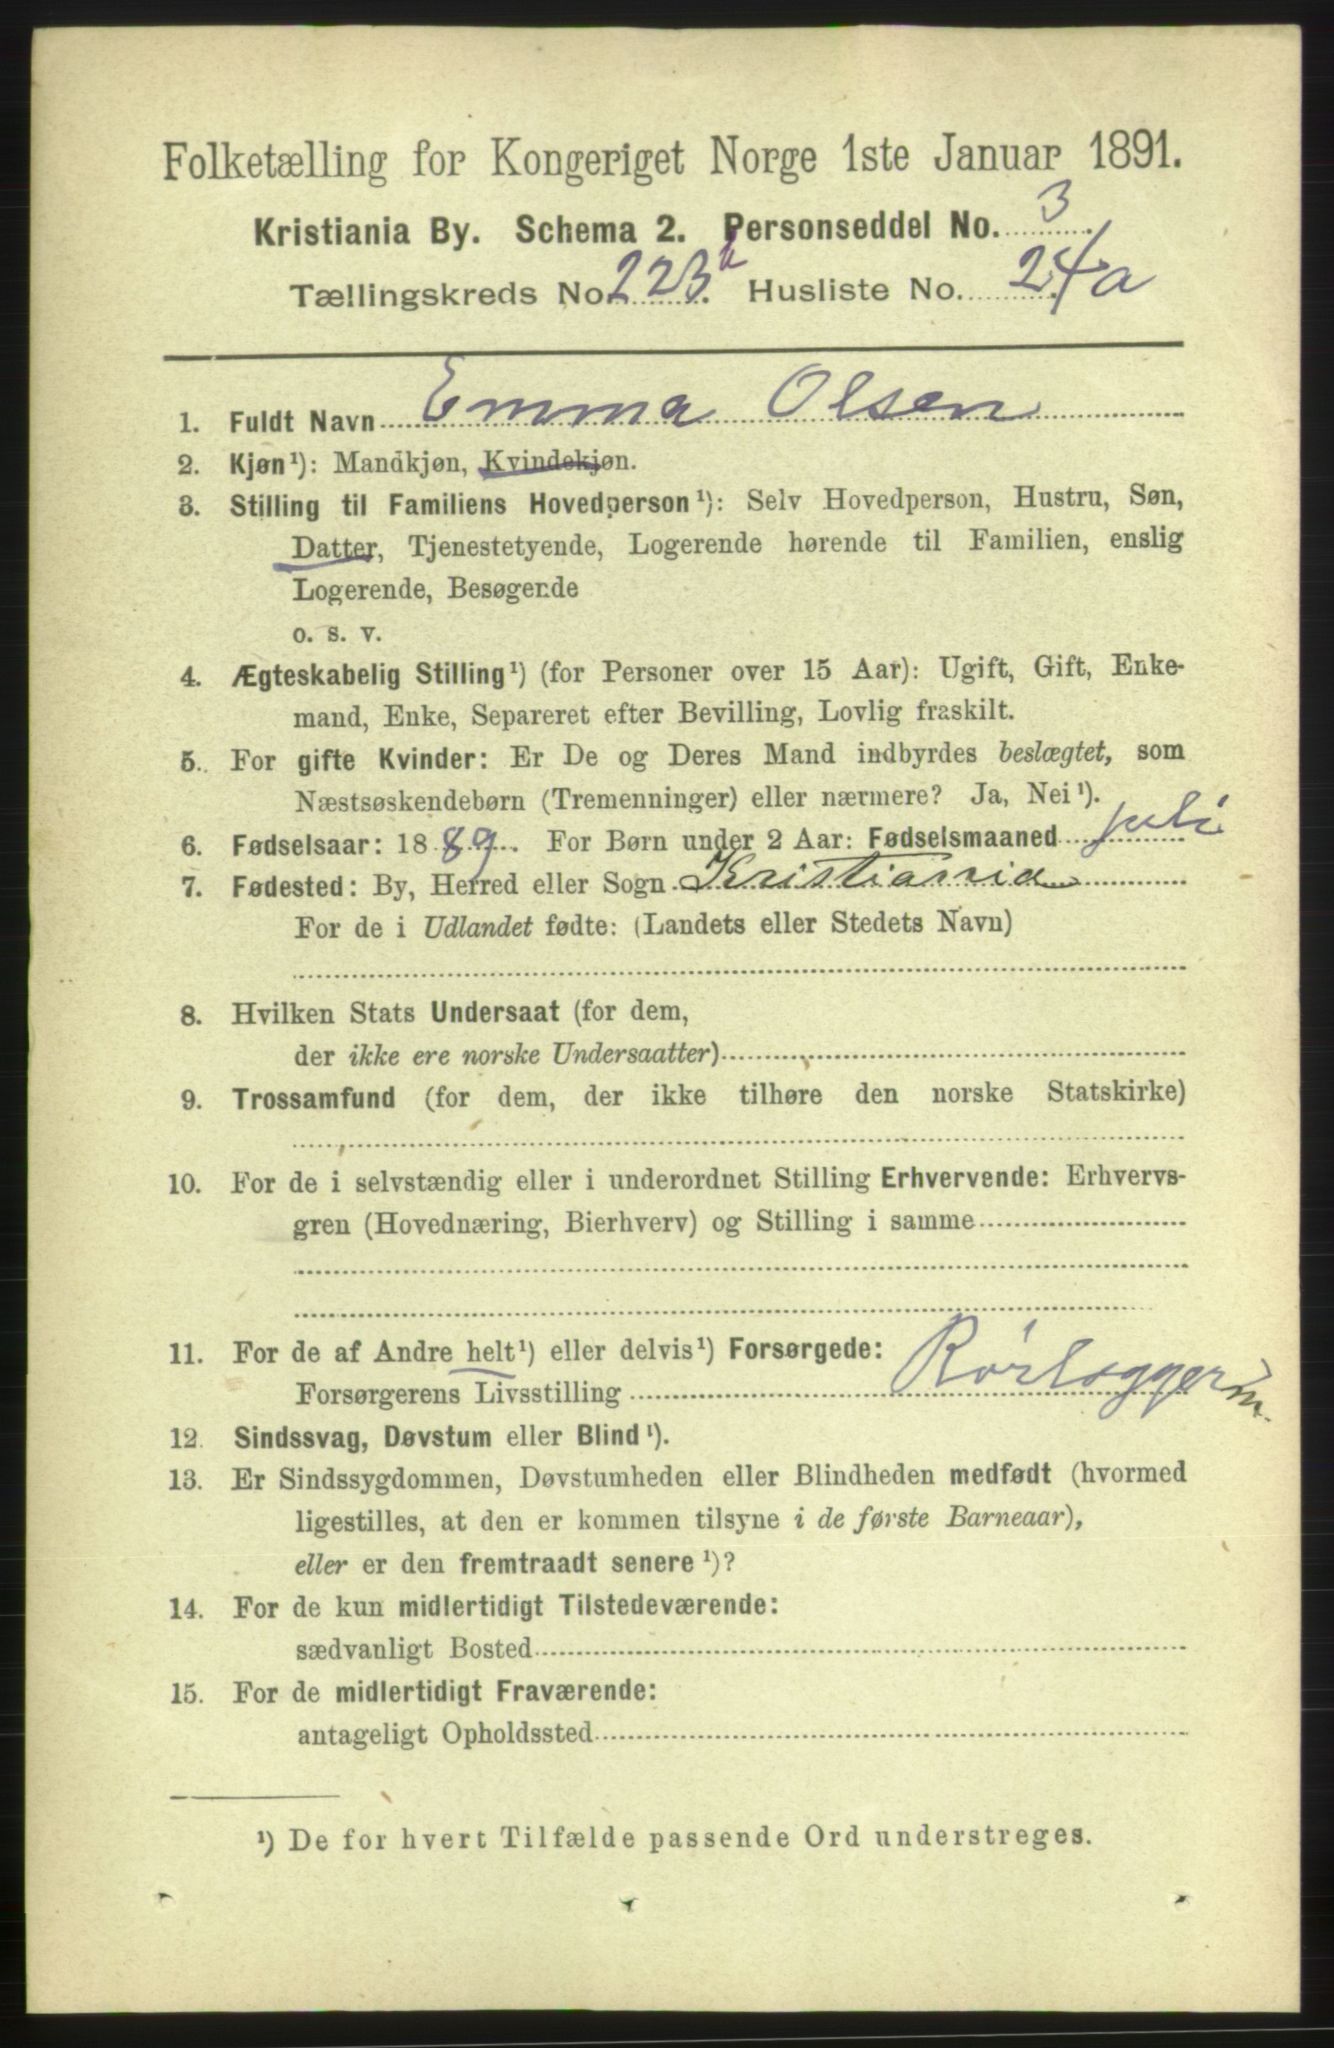 Folketælling for Kongeriget Norge 1ste Januar 1891.
Kristiania By. Schema 2. Personseddel No. 3.
Tællingskreds No. 223b. Husliste No. 24a
1. Fuldt Navn Emma Olsen
2. Kjøn¹): Mandkjøn, Kvindekjøn.
3. Stilling til Familiens Hovedperson¹): Selv Hovedperson, Hustru, Søn,
Datter, Tjenestetyende, Logerende hørende til Familien, enslig
Logerende, Besøgende
o. s. v.
4. Ægteskabelig Stilling¹) (for Personer over 15 Aar): Ugift, Gift, Enke-
mand, Enke, Separeret efter Bevilling, Lovlig fraskilt.
5. For gifte Kvinder: Er De og Deres Mand indbyrdes beslægtet, som
Næstsøskendebørn (Tremenninger) eller nærmere? Ja, Nei¹).
6. Fødselsaar: 1889. For Børn under 2 Aar: Fødselsmaaned juli
7. Fødested: By, Herred eller Sogn Kristiania
For de i Udlandet fødte: (Landets eller Stedets Navn)
8. Hvilken Stats Undersaat (for dem,
der ikke ere norske Undersaatter)
9. Trossamfund (for dem, der ikke tilhøre den norske Statskirke)
10. For de i selvstændig eller i underordnet Stilling Erhvervende: Erhvervs-
gren (Hovednæring, Bierhverv) og Stilling i samme
11. For de af Andre helt¹) eller delvis¹) Forsørgede:
Forsørgerens Livsstilling Rørlægger
12. Sindssvag, Døvstum eller Blind¹).
13. Er Sindssygdommen, Døvstumheden eller Blindheden medfødt (hvormed
ligestilles, at den er kommen tilsyne i de første Barneaar),
eller er den fremtraadt senere¹)?
14. For de kun midlertidigt Tilstedeværende:
sædvanligt Bosted
15. For de midlertidigt Fraværende:
antageligt Opholdssted
¹) De for hvert Tilfælde passende Ord understreges.